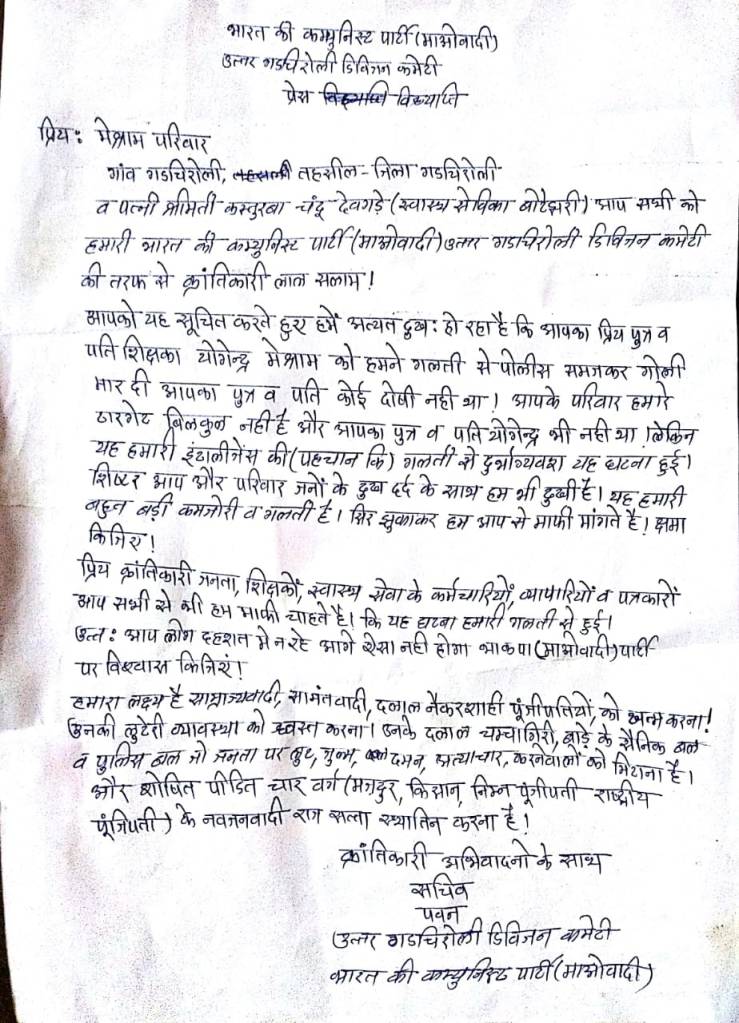 भारत की कम्युनिस्ट पार्टी (माओवादी)
उत्तर गडचिरोली डिविजन कमेटी
प्रेस विज्ञप्ति
प्रिय: मेश्राम परिवार
गांव गडचिरोली, तहसील - जिला गडचिरोली
व पत्नी श्रीमिती कस्तुरबा चंदू देवगडे (स्वास्थ सेविका बोटेझरी) आप सभी को
हमारी भारत की कम्युनिस्ट पार्टी (माओवादी) उत्तर गडचिरोली डिविजन कमेटी
की तरफ से क्रांतिकारी लाल सलाम!
आपको यह सूचित करते हुए हमें अत्यत दुख: हो रहा है कि आपका प्रिय पुत्र व
पति शिक्षका योगेन्द्र मेश्राम को हमने गलती से पोलीस समजकर गोली
मार दी आपका पुत्र व पति कोई दोषी नही था! आपके परिवार हमारे
टारगेट बिलकुल नही है और आपका पुत्र व पति योगेन्द्र भी नही था। लेकिन
यह हमारी इंटालीजेंस की (पहचान कि) गलती से दुर्भाग्यवश यह घटना हुई।
शिष्टर आप और परिवार जनों के दुख दर्द के साथ हम भी दुखी है। यह हमारी
बहुत बड़ी कमजोरी व गलती है। सिर झुकाकर हम आप से माफी मांगते है! क्षमा
किजिए!
प्रिय क्रांतिकारी जनता, शिक्षकों, स्वास्थ सेवा के कर्मचारियों, व्यापारियों व पत्रकारों
आप सभी से भी हम माफी चाहते है। कि यह घटना हमारी गलती से हुई।
उत्त: आप लोग दहशत मे न रहे आगे ऐसा नही होगा भाकपा (माओवादी) पार्टी
पर विश्वास किजिएं!
हमारा लक्ष्य है साम्राज्यवादी, सामंतवादी, दलाल नैकरशाही पूंजीपतियों, को खत्म करना!
उनकी लुटेरी व्यावस्था को ध्वस्त करना। उनके दलाल चम्चागिरी, भाड़े के सैनिक बल
व पुलिस बल जो जनता पर लुट, जुल्म, दमन, अत्याचार, करनेवालों को मिटाना है।
और शोषित पीडित चार वर्ग (मजदुर, किसान, निम्न पूंजीपती राष्ट्रीय
पूंजिपती) के नवजनवादी राज सत्ता स्थातिन करना है!
क्रांतिकारी अभिवादनो के साथ
सचिव
पवन
उत्तर गडचिरोली डिविजन कमेटी
भारत की कम्युनिस्ट पार्टी (माओवादी)